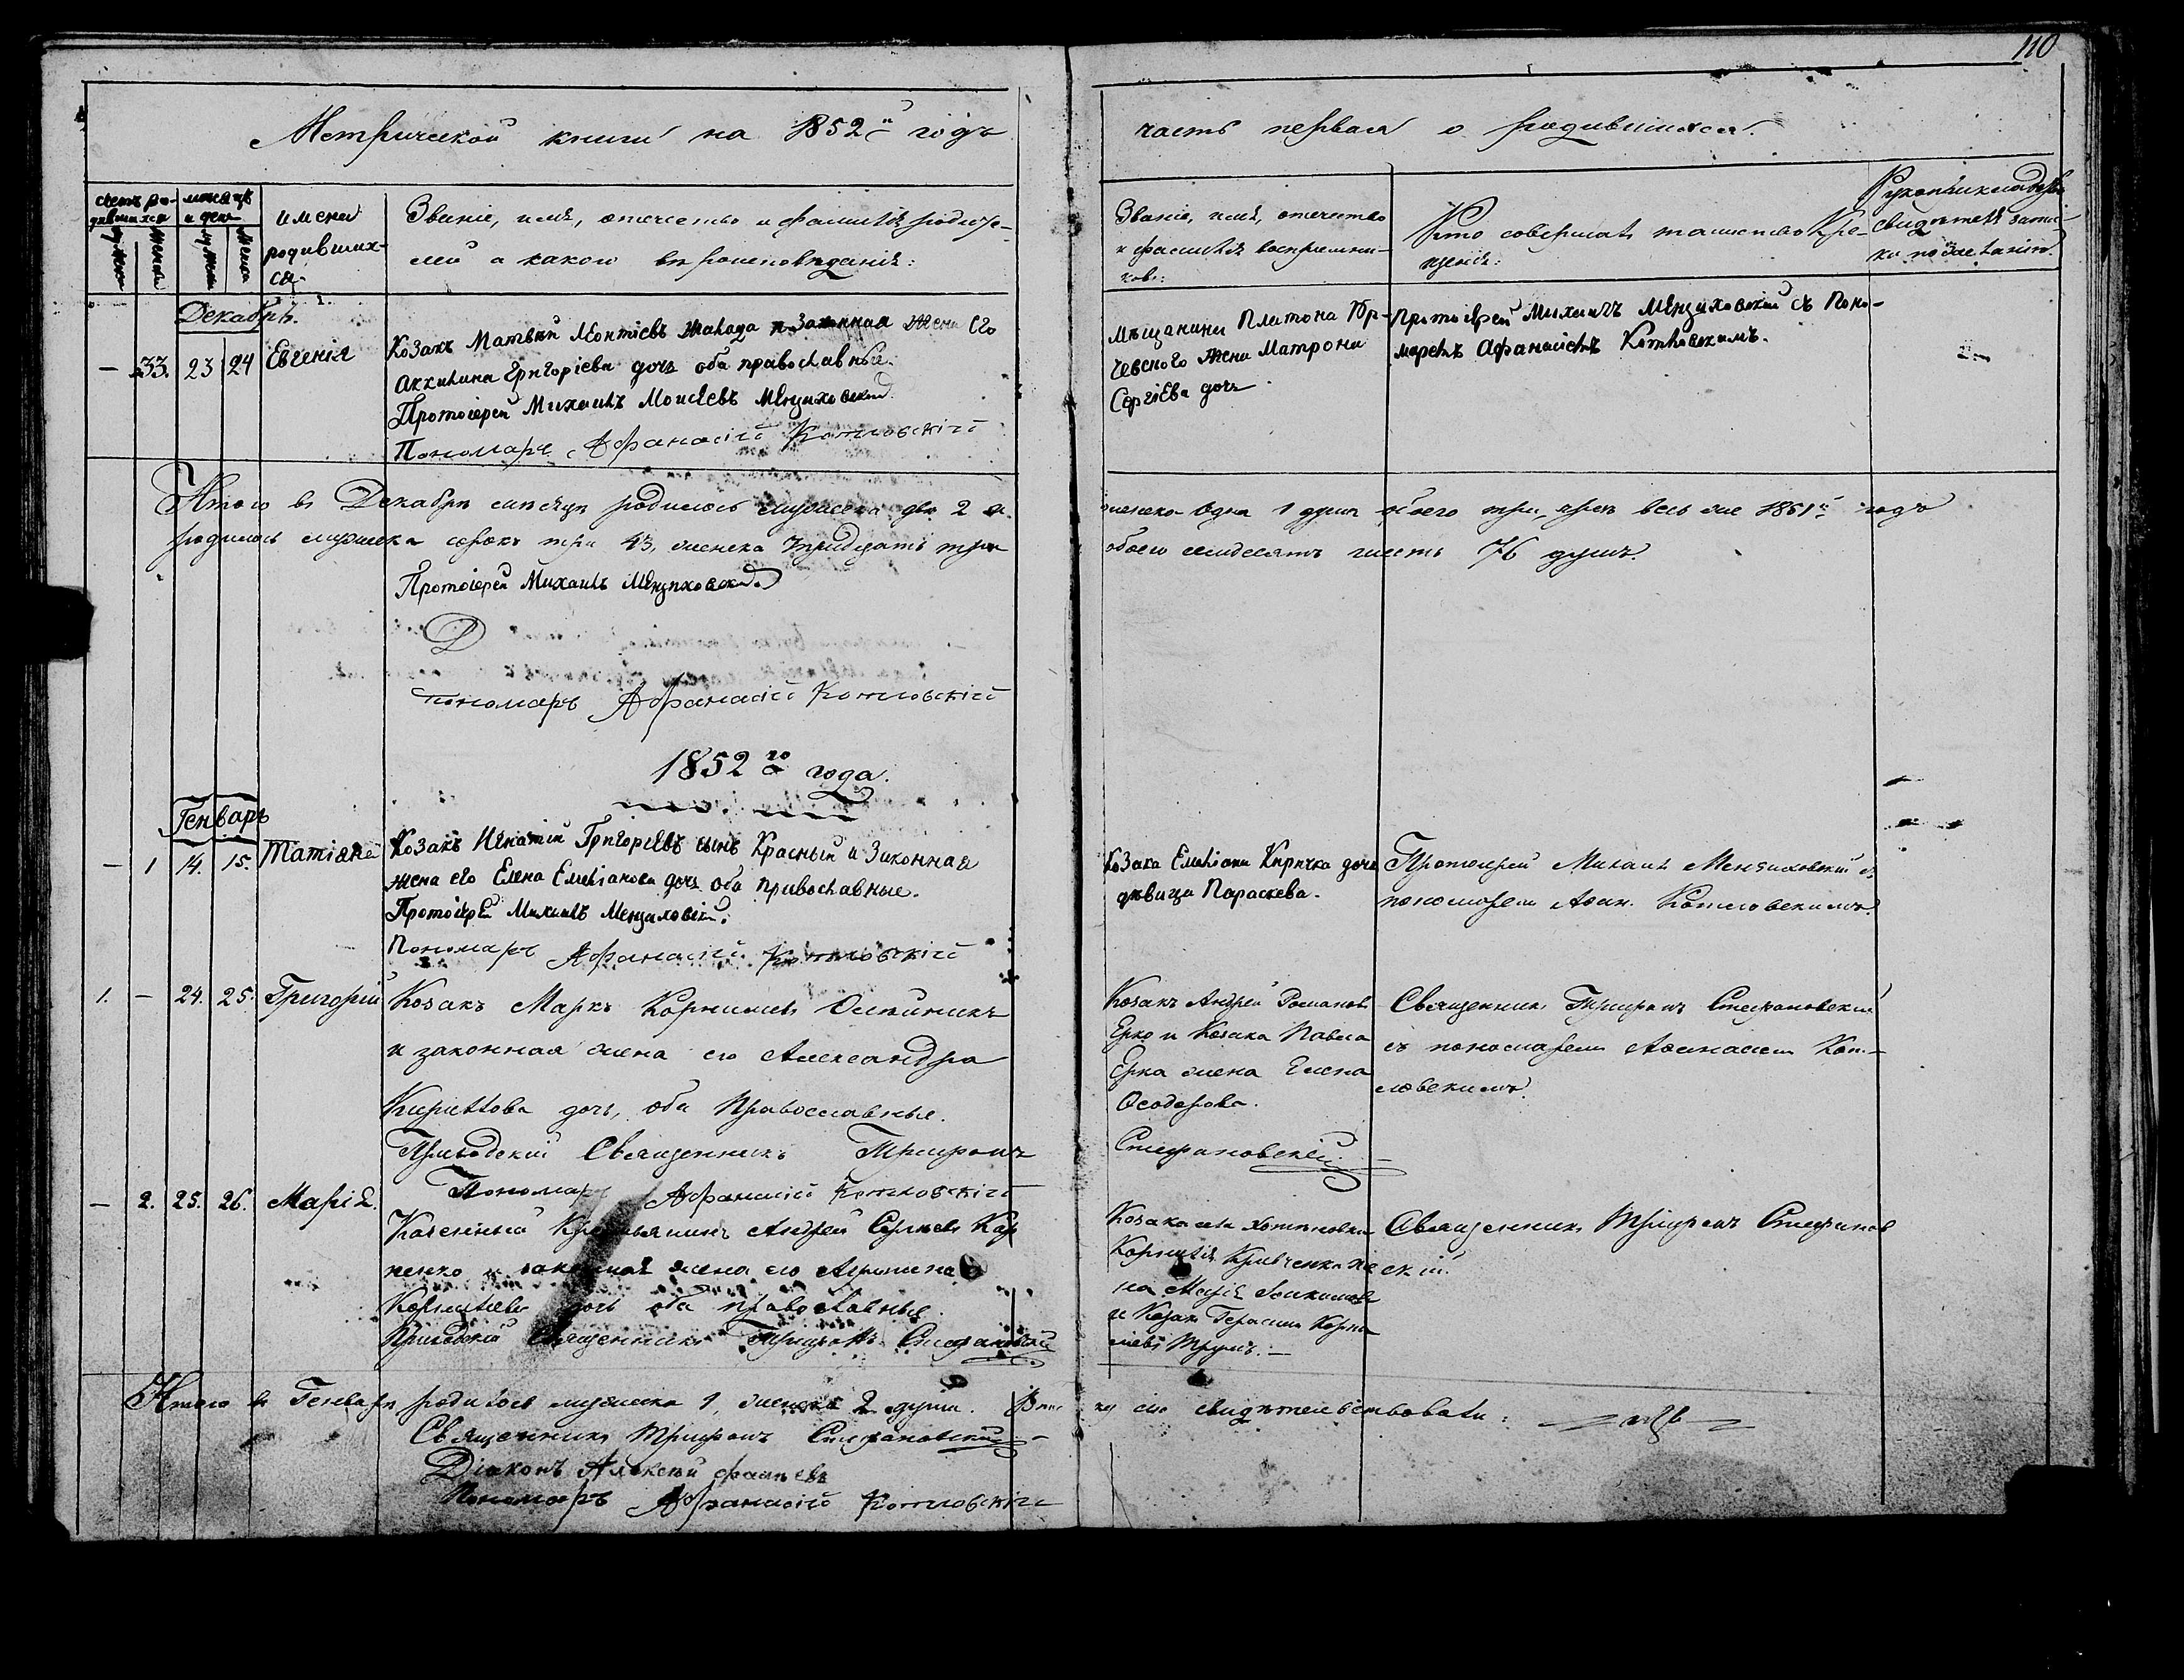 110
Метрической книги на 1852й годъ
часть первая о родившихся.
счетъ ро-
дившихся
месяцъ
и день
имена
родивших-
ся
Званіе, имя, отечество и фамилія родите-
лей и какого вѣроисповѣданія:
Званіе, имя, отечество
и фамилія воспріемни-
ковъ:
Кто совершалъ таинство Кре-
щенія:
Рукоприкладство
свидѣтелей запис-
ки по желанію.
Декабрь.
— 33. 23 24 Евгенія
Козакъ Матвѣй Леонтіевъ и Законная жена Его
Аккилина Григоріева дочь оба православные.
Протоіерей Михаилъ Моисѣевъ Менциховскій
Пономарь Афанасій Котловскій
Мѣщанина Платона
жена Матрона
Сергіева дочь
Протоіерей Михаилъ Менциховскій съ Поно-
маремъ Афанасіемъ Котловскимъ.
Итого въ Декабрѣ мѣсяцѣ родилось мужеска два 2 и
женска Одна 1 душа обоего три, чрезъ весь же 1851й годъ
родилось мужеска сорокъ три 43, женска тридцать три
обоего семдесятъ шесть 76 душъ.
Протоіерей Михаилъ Менциховскій
Д
пономарь Афанасій Котловскій
1852го года.
Генварь
— 1 14. 15. Татіяна
Козакъ Игнатій Григоріевъ сынъ Красный и Законная
жена его Елена Емеліанова дочь оба православные.
Протоіерей Михаилъ Менциховскій.
Пономарь Афанасій Котловскій
Козака Емеліана Киричка дочь
дѣвица Параскева.
Протоіерей Михаилъ Менциховскій съ
пономаремъ Афан. Котловскимъ.
1. — 24. 25. Григорій
Козакъ Маркъ Корниліевъ Олейникъ
и законная жена его Александра
Кириллова дочь, оба Православные.
Приходскій Священникъ Трифонъ
Стефановскій.
Пономарь Афанасій Котловскій
Козакъ Андрей Романовъ
Ерко и Козака Павла
Ерка жена Елена
Феодорова.
Священникъ Трифонъ Стефановскій
съ пономаремъ Афанасіем Кот-
ловскимъ.
— 2. 25. 26. Марія.
Казенный Крестьянинъ Андрей Сергіевъ Кар
пенко и законная жена его
Корниліева дочь оба православные.
Приходскій Священникъ Трифонъ Стефановскій
Козака
Корнилія Кривченка же
на Марія
и Козакъ Герасимъ Корни
ліевъ
Священникъ Трифонъ Стефанов
скій.
Итого въ Генварѣ родилось мужеска 1, женска 2 души.
сію свидѣтельствовали:
Священникъ Трифонъ Стефановскій
Діаконъ Алексѣй
Пономарь Афанасій Котловскій